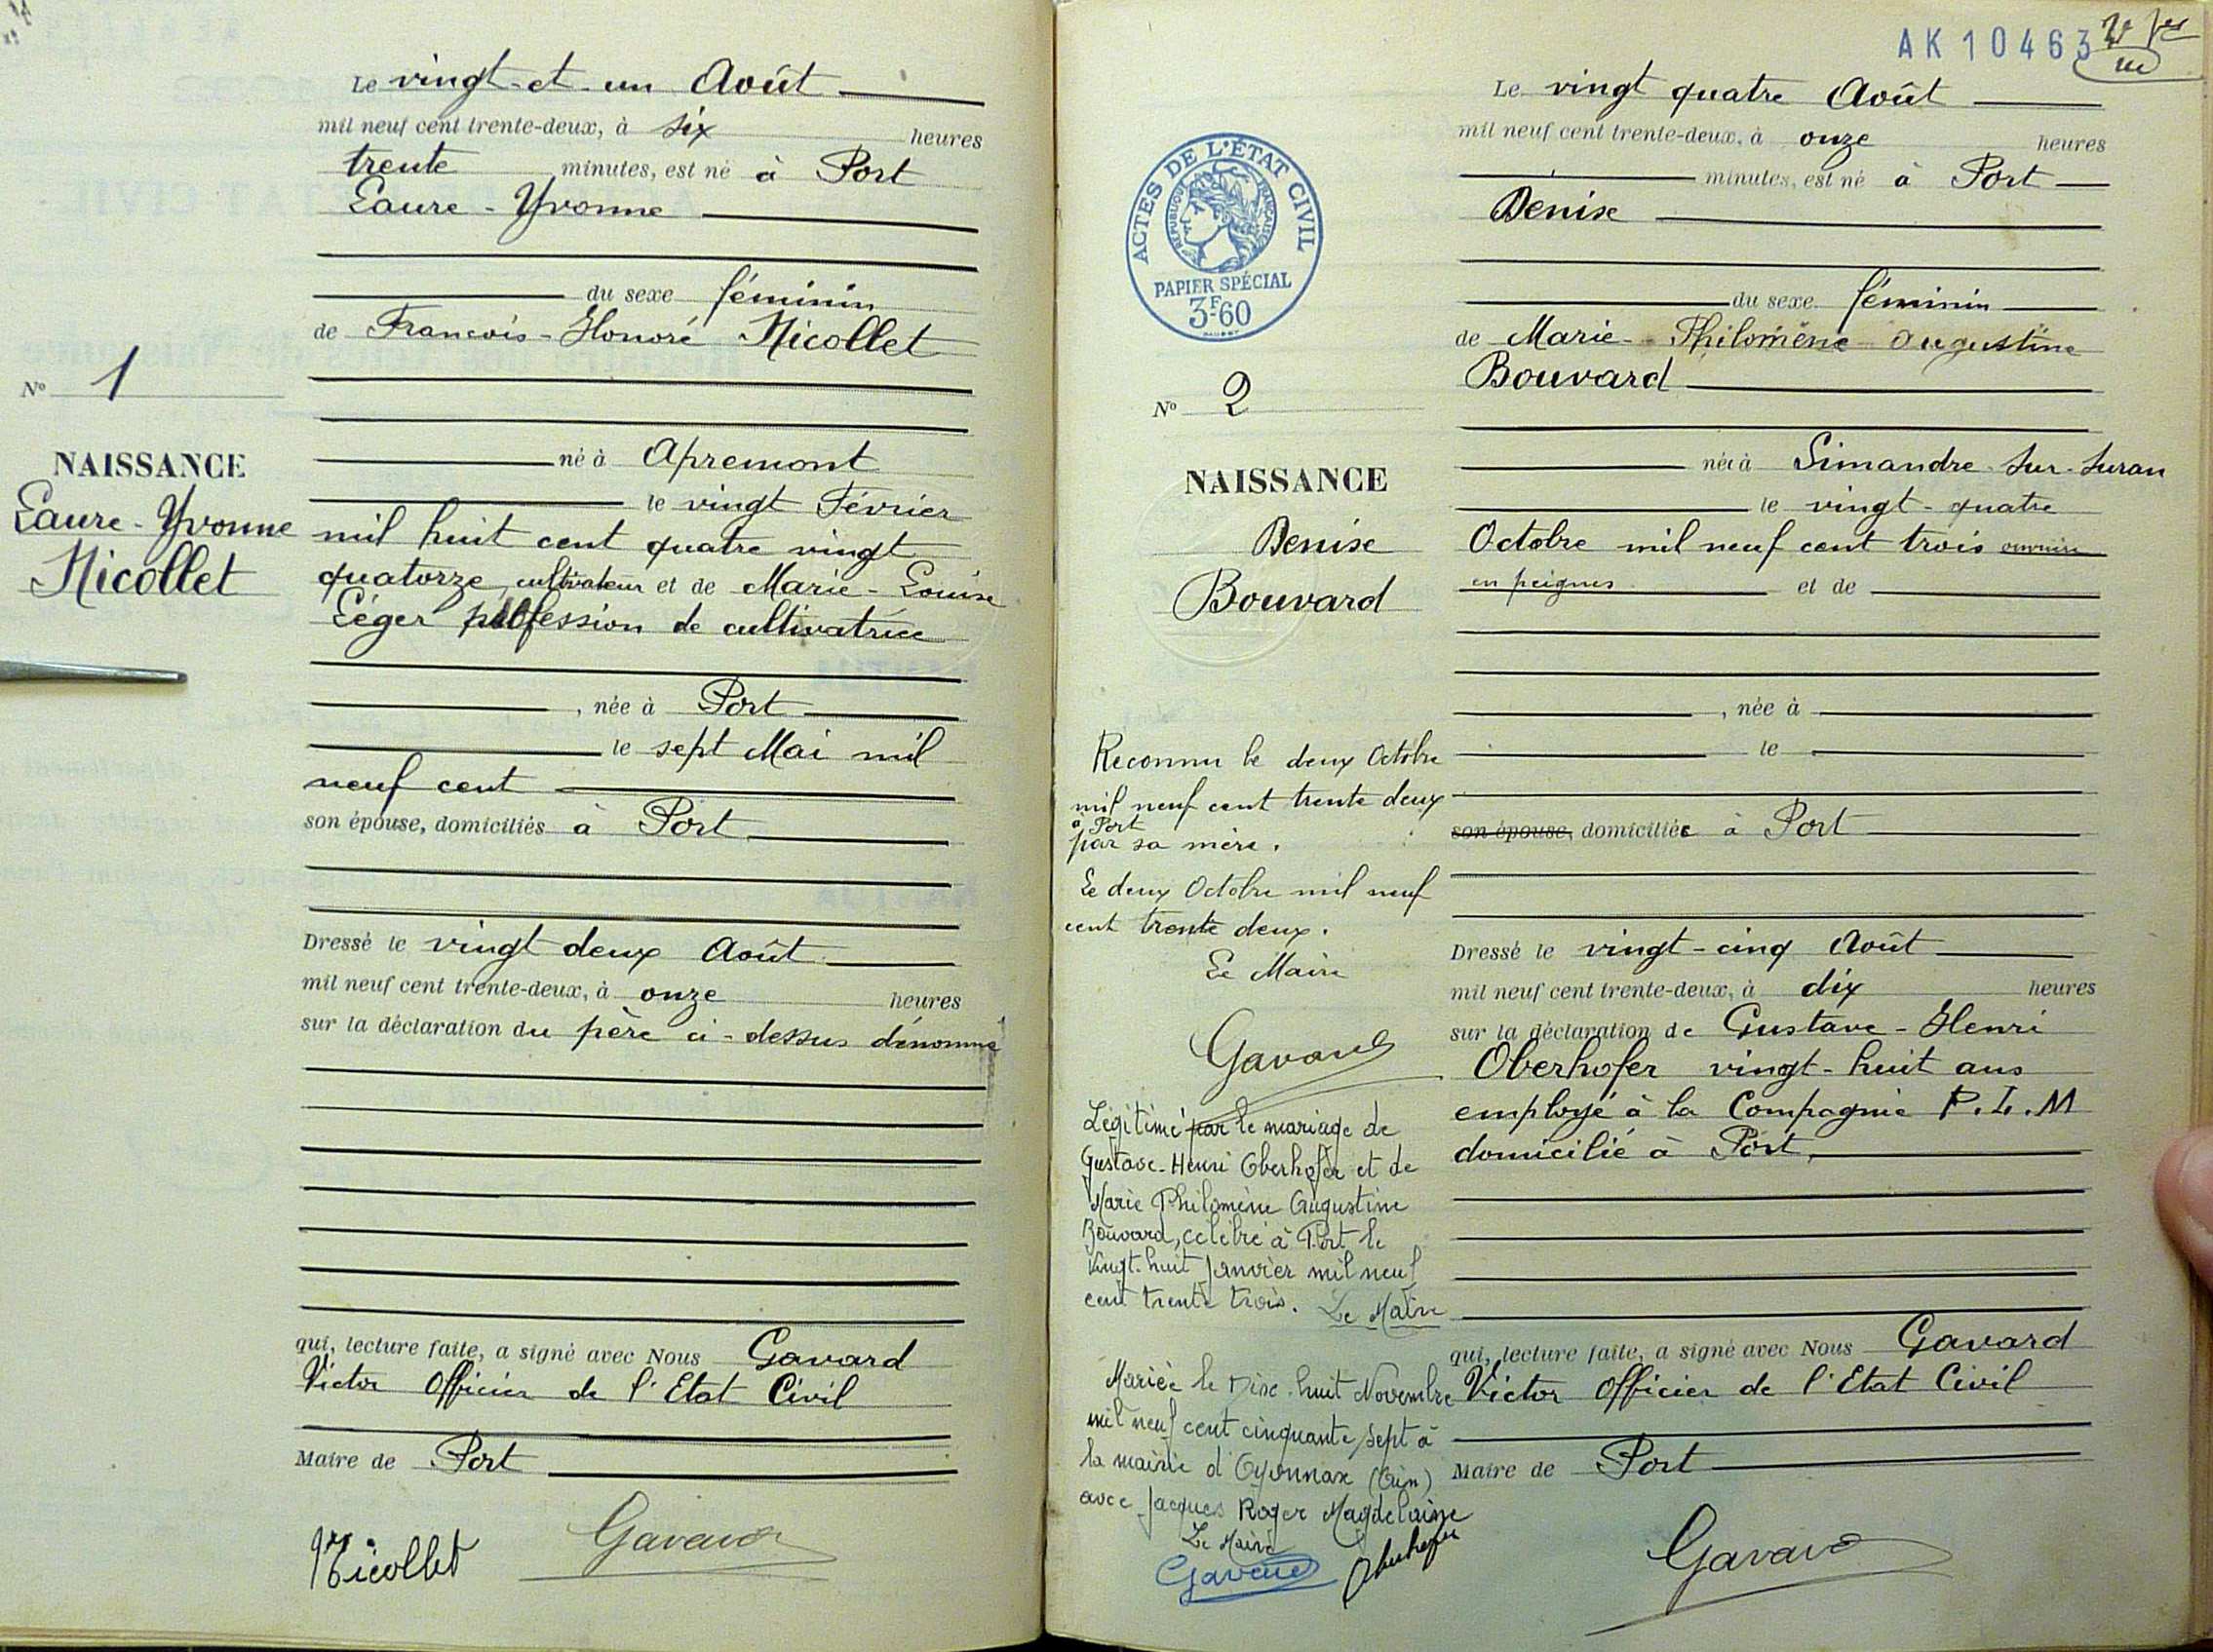 Le vingt-et-un Août
mil neuf cent trente-deux, à six heures
trente minutes, est né à Port
Laure-Yvonne
du sexe féminin
de Francois-Honoré Nicollet
né à Apremont
le vingt Février
mil huit cent quatre vingt
quatorze, cultivateur et de Marie-Louise
Léger profession de cultivatrice
, née à Port
le sept Mai mil
neuf cent
son épouse, domiciliés à Port
Dressé le vingt deux Août
mil neuf cent trente-deux, à onze heures
sur la déclaration du père ci-dessus dénommé
qui, lecture faite, a signé avec Nous Gavard
Victor Officier de l'Etat Civil
Maire de Port
Nicollet Gavard
N° 1
NAISSANCE
Laure-Yvonne
Nicollet
AK10463
ACTES DE L'ÉTAT CIVIL
RÉPUBLIQUE FRANÇAISE
PAPIER SPÉCIAL
3F60
N° 2
NAISSANCE
Denise
Bouvard
Reconnu le deux Octobre
mil neuf cent trente deux
à Port
par sa mère.
Le deux Octobre mil neuf
cent trente deux.
Le Maire
Gavard
Légitimé par le mariage de
Gustave-Henri Oberhofer et de
Marie Philomène Augustine
Bouvard, célébré à Port le
Vingt-huit Janvier mil neuf
cent trente trois. Le Maire
Mariée le Dix-huit Novembre
mil neuf cent cinquante sept à
la mairie d'Oyonnax (Ain)
avec Jacques Roger Magdelaine
Le Maire
Gavard Oberhofer
Le vingt quatre Août
mil neuf cent trente-deux, à onze heures
minutes, est né à Port
Denise
du sexe féminin
de Marie-Philomène Augustine
Bouvard
née à Simandre-sur-Suran
le vingt-quatre
Octobre mil neuf cent trois ouvrière
en peignes et de
, née à
le
son épouse, domiciliée à Port
Dressé le vingt-cinq Août
mil neuf cent trente-deux, à dix heures
sur la déclaration de Gustave-Henri
Oberhofer vingt-huit ans
employé à la Compagnie P.L.M
domicilié à Port,
qui, lecture faite, a signé avec Nous Gavard
Victor Officier de l'Etat Civil
Maire de Port
Gavard